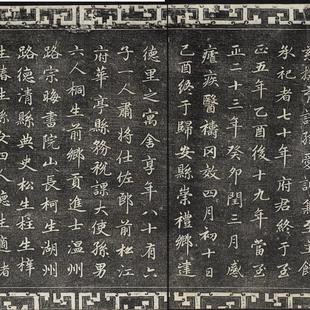 祀者七十年府君終于至
正五年乙酉後十九年當至
正二十三年癸卯閏三月感
瘧疾醫禱罔效四月初十日
己酉終于歸安縣崇禮鄉達
德里之寓舍享年八十有六
子一人肅將仕佐郎前松江
府華亭縣務稅課大使孫男
六人桐生前鄉貢進士溫州
路宗晦書院山長柯生湖州
路德清縣典史松生柱生樟
生椿生孫女四人德生適